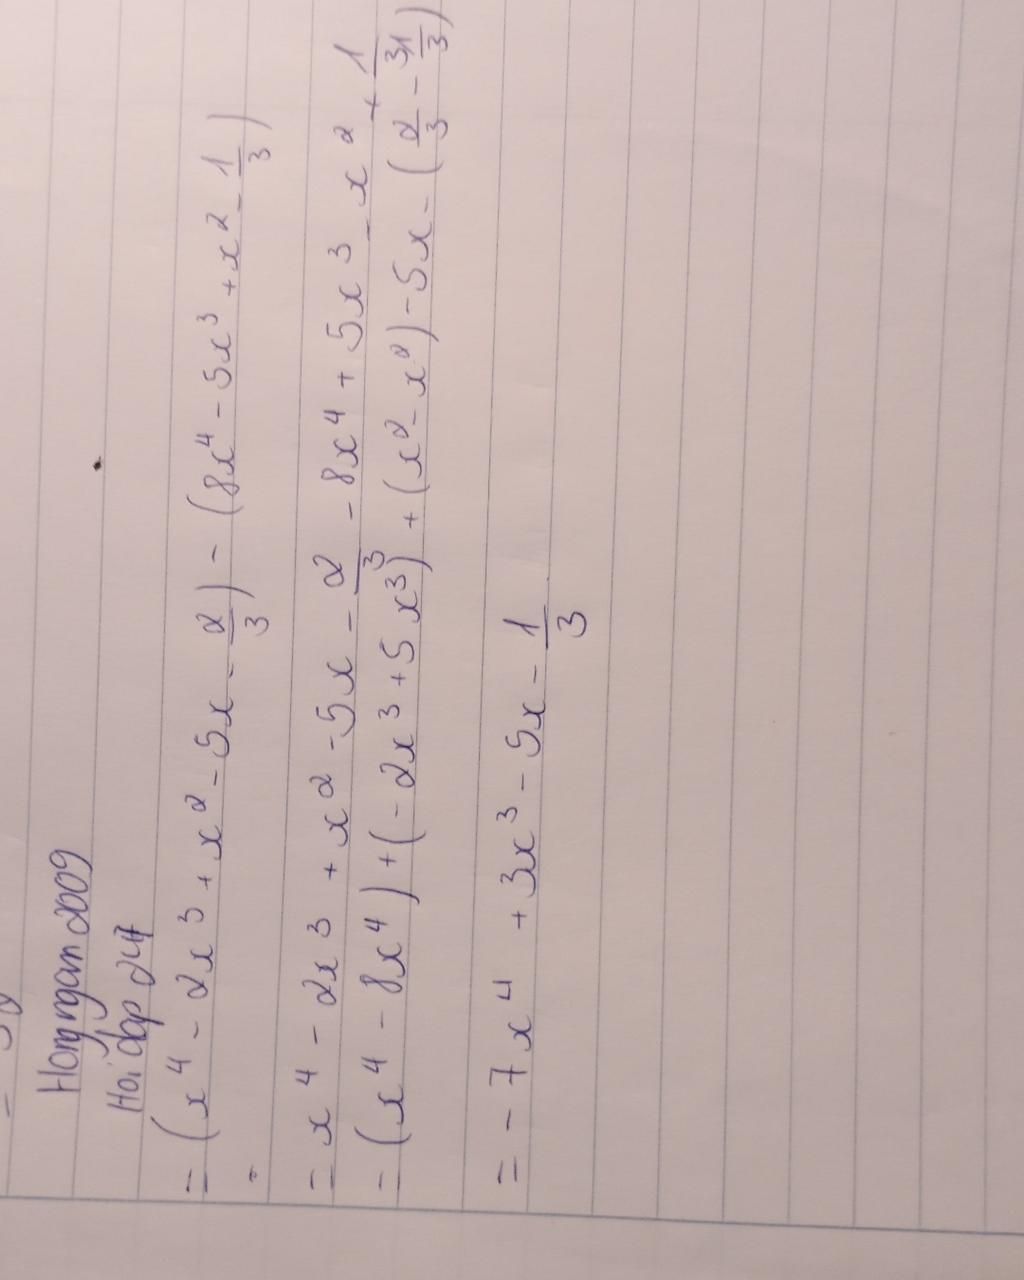 Hongngan2009
Hoi dap 247
= (x⁴ - 2x³ + x² - 5x - 2/3) - (8x⁴ - 5x³ + x² - 1/3)
=
= x⁴ - 2x³ + x² - 5x - 2/3 - 8x⁴ + 5x³ - x² + 1/3
= (x⁴ - 8x⁴) + (-2x³ + 5x³) + (x² - x²) - 5x - (2/3 - 1/3)
= -7x⁴ + 3x³ - 5x - 1/3